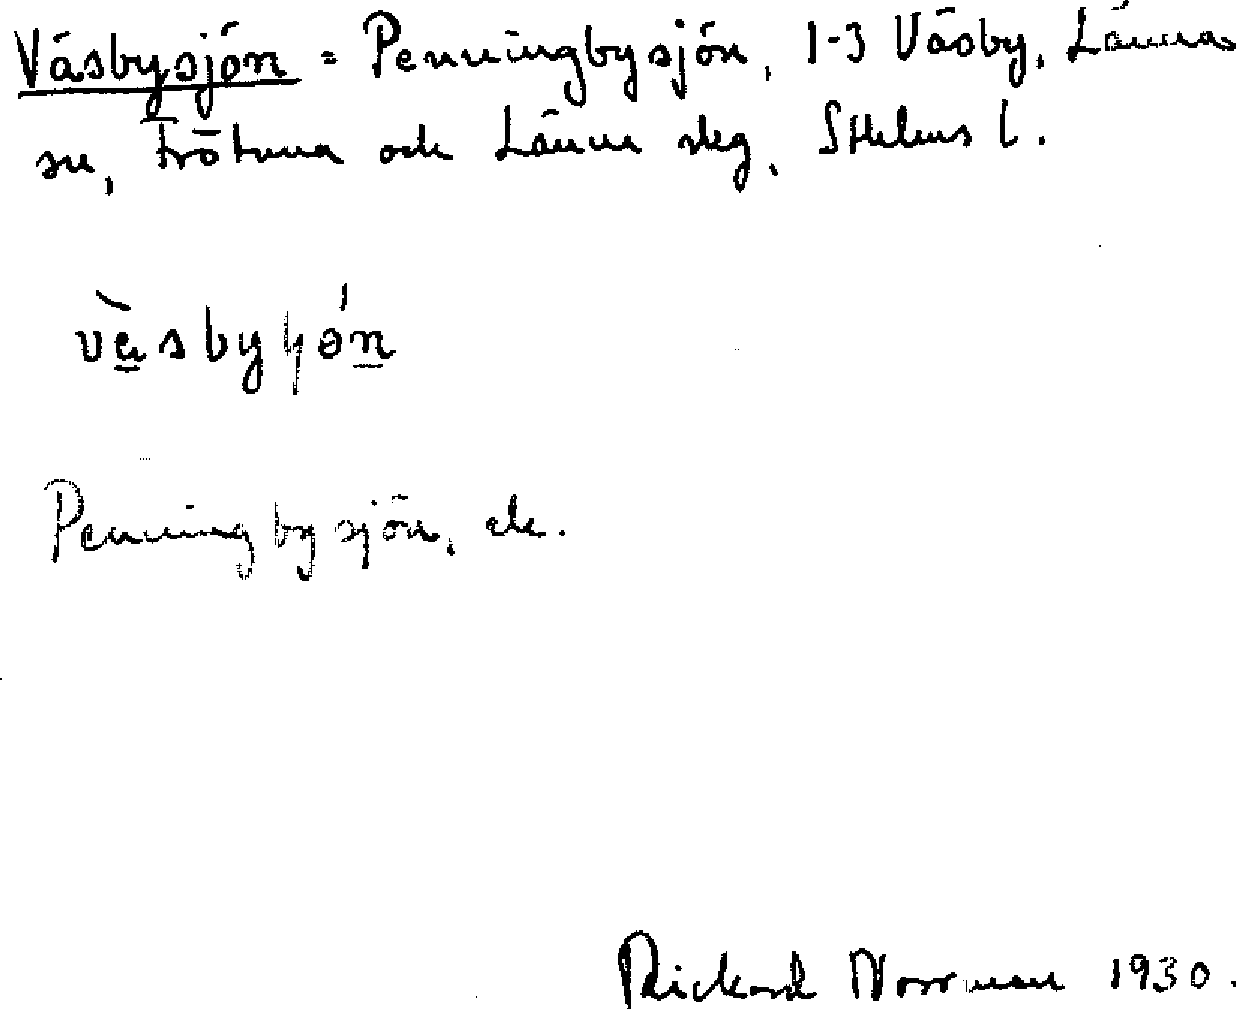 Väsbysjön = Penningbysjön, 1-3 Väsby, Länna
sn, Frötuna och Länna skg, Sthlms l.
Penningbysjön, etc.
Rickard Norrman 1930.